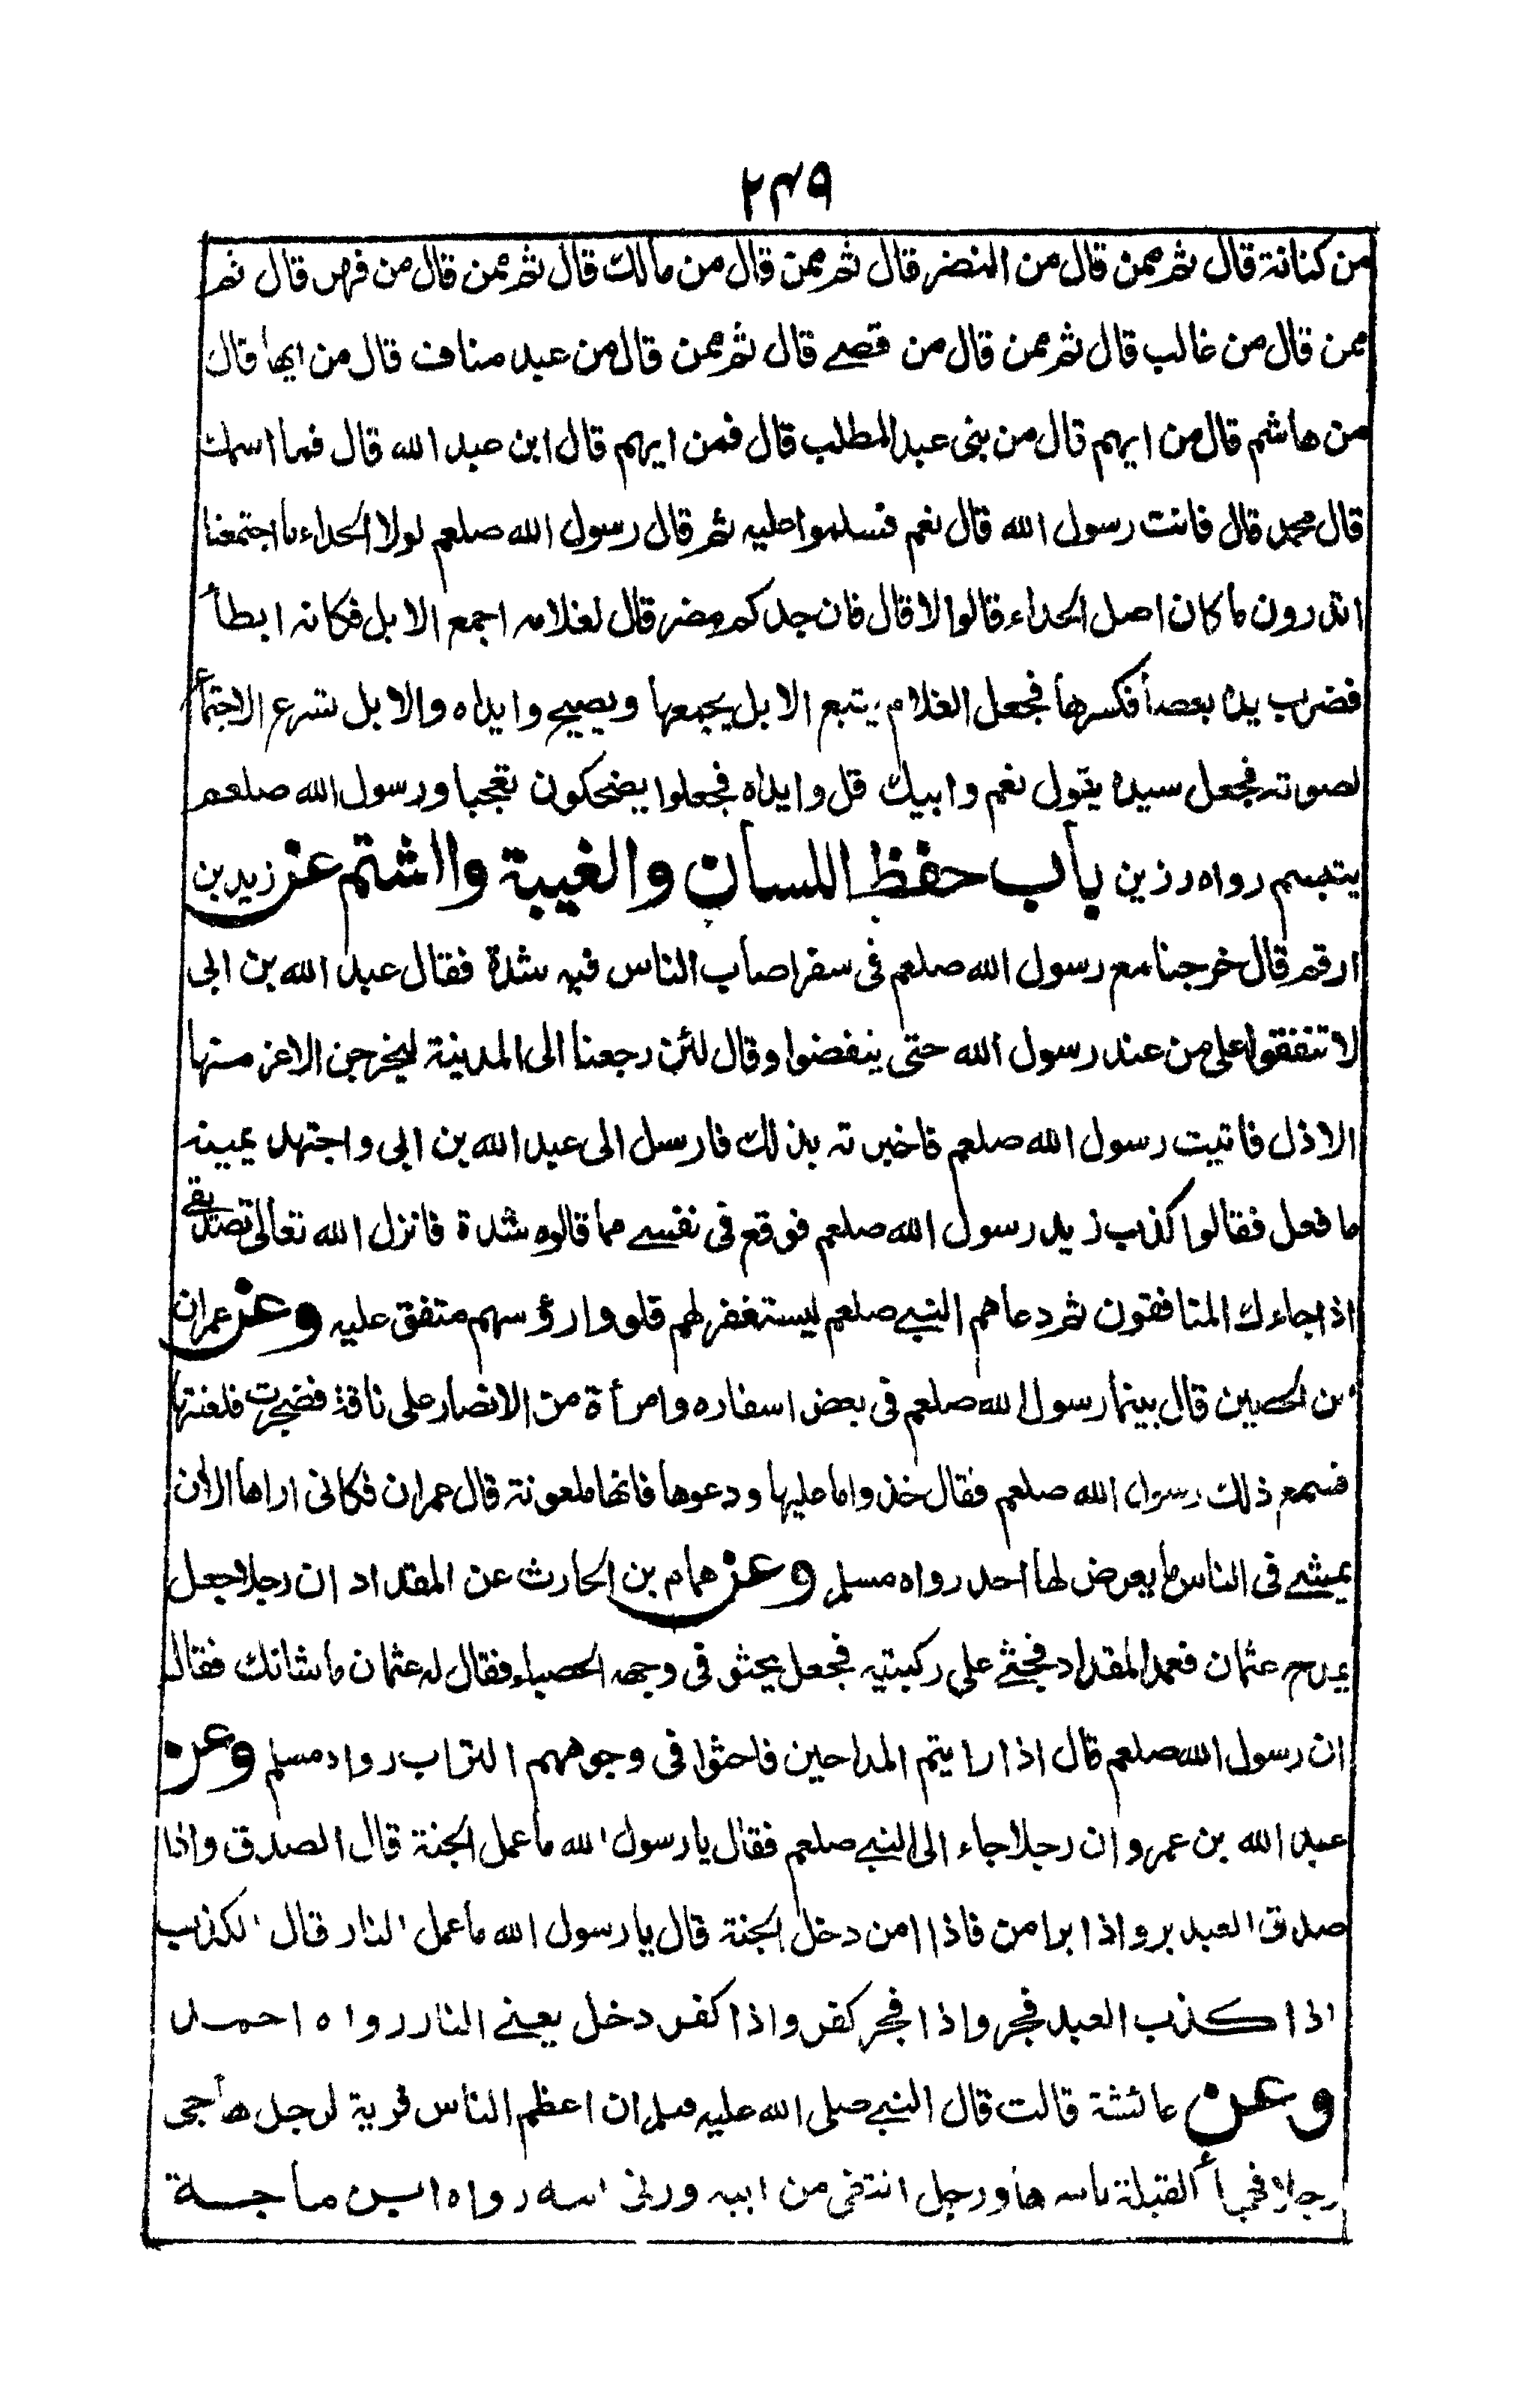 ۲۴۹
من كنانة قال ثم ممن قال من النضر قال ثم ممن قال من مالك قال ثم ممن قال من فهر قال ثم
ممن قال من غالب قال ثم ممن قال من قصے قال ثم ممن قال من عبد مناف قال من ايها قال
من هاشم قال من ايهم قال من بنى عبد المطلب قال فمن ايهم قال ابن عبد الله قال فما اسمك
قال محمد قال فانت رسول الله قال نعم فسلموا عليه ثم قال رسول الله صلعم لولا الحداء ما اجتمعنا
اتدرون ما كان اصل الحداء قالوا لا قال فان جدكم مضر قال لغلامه اجمع الابل فكانه ابطأ
فضرب يده بعصا فكسرها فجعل الغلام يتبع الابل يجمعها ويصيح وايداه والابل تسرع الاجتماع
لصوته فجعل سيده يقول نعم وابيك قل وايداه فجعلوا يضحكون تعجبا ورسول الله صلعم
يتبسم رواه رزين باب حفظ اللسان والغيبة والشتم عن زيد بن
ارقم قال خرجنا مع رسول الله صلعم فى سفر اصاب الناس فيه شدة فقال عبد الله بن ابى
لا تنفقوا على من عند رسول الله حتى ينفضوا وقال لئن رجعنا الى المدينة ليخرجن الاعز منها
الاذل فاتيت رسول الله صلعم فاخبرته بذلك فارسل الى عبد الله بن ابى واجتهد يمينه
ما فعل فقالوا كذب زيد رسول الله صلعم فوقع فى نفسے مما قالوه شدة فانزل الله تعالى تصديقے
اذا جاءك المنافقون ثم دعاهم النبے صلعم ليستغفر لهم فلووا رؤسهم متفق عليه وعن عمران
بن الحصين قال بينما رسول الله صلعم فى بعض اسفاره وامرأة من الانصار على ناقة فضجرت فلعنتها
فسمع ذلك رسول الله صلعم فقال خذوا ما عليها ودعوها فانها ملعونة قال عمران فكانى اراها الان
يمشے فى الناس ما يعرض لها احد رواه مسلم وعن همام بن الحارث عن المقداد ان رجلا جعل
يمدح عثمان فعمد المقداد فجثے على ركبتيه فجعل يحثو فى وجهه الحصباء فقال له عثمان ما شانك فقال
ان رسول الله صلعم قال اذا رايتم المداحين فاحثوا فى وجوههم التراب رواه مسلم وعن
عبد الله بن عمرو ان رجلا جاء الى النبے صلعم فقال يا رسول الله ما عمل الجنة قال الصدق واذا
صدق العبد بر واذا بر امن فاذا امن دخل الجنة قال يا رسول الله ما عمل النار قال الكذب
اذا كذب العبد فجر واذا فجر كفر واذا كفر دخل يعنے النار رواه احمد
وعن عائشة قالت قال النبے صلى الله عليه وسلم ان اعظم الناس فرية لرجل هاجى
رجلا فهجا القبيلة باسرها ورجل انتفى من ابيه وزنى امه رواه ابن ماجة